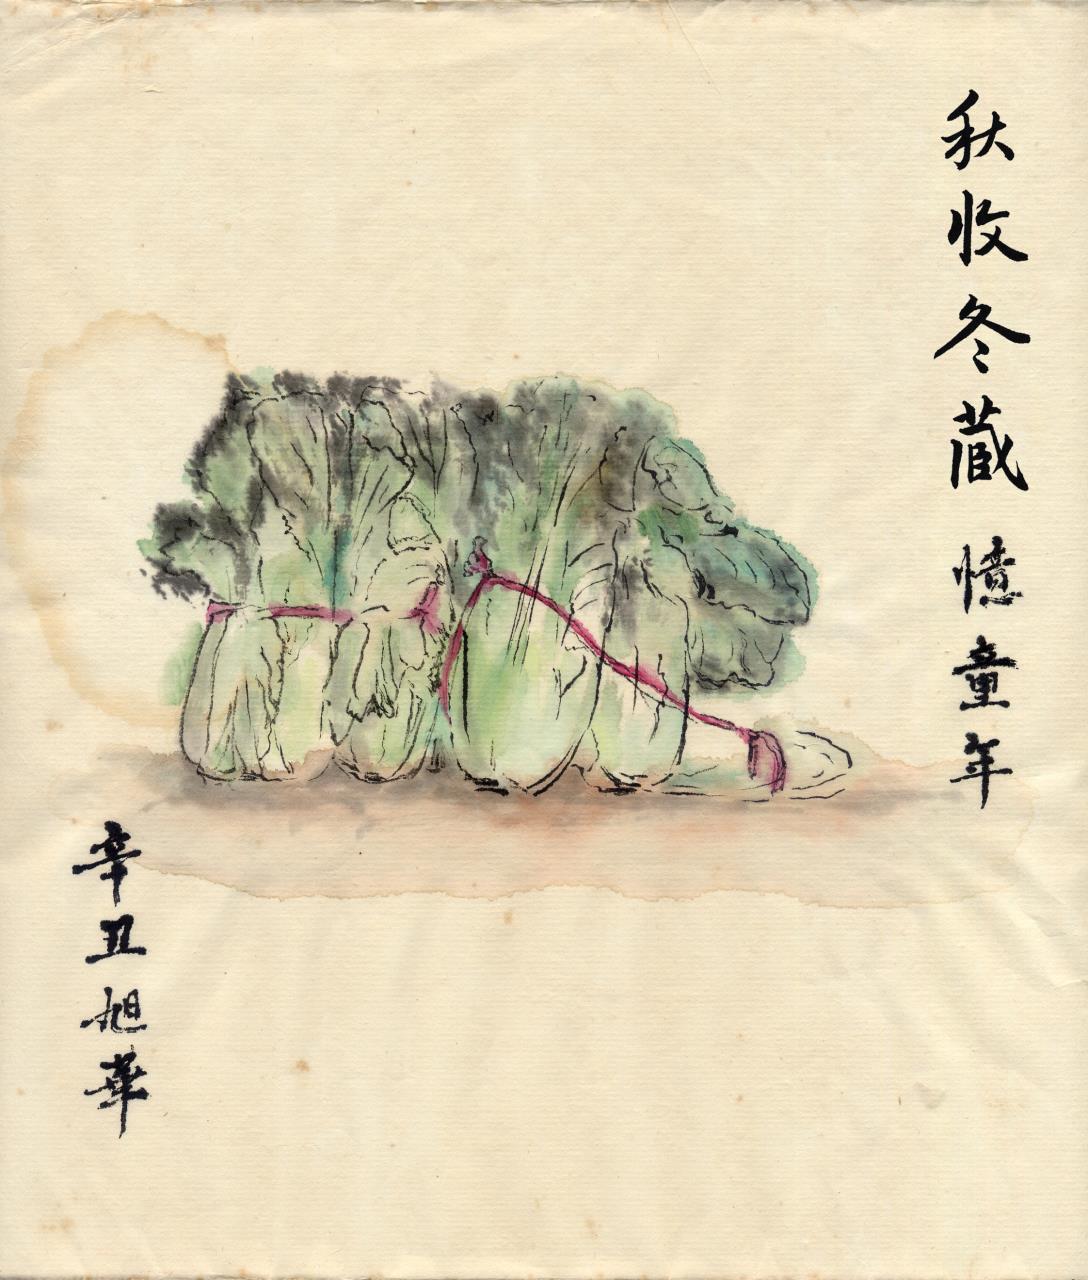 秋收冬蔵 憶童年
辛丑旭華